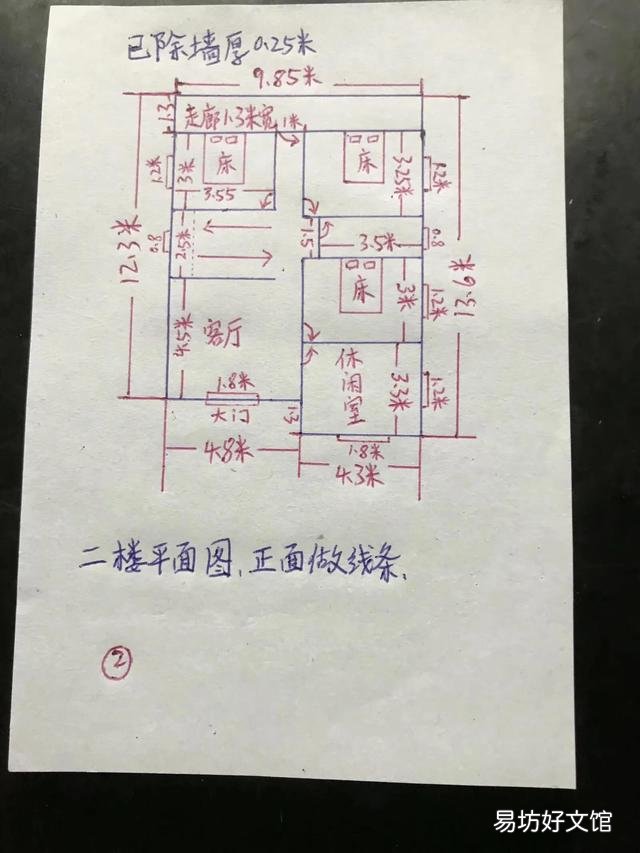 已除墙厚0.25米
9.85米
1.3
走廊1.3米宽
1米
1.2米
3米
床
床
3.25米
1.2米
3.55
12.3米
0.8
2.5米
1.5
3.5米
0.8
13.6米
床
3米
1.2米
4.5米
客厅
休闲室
3.3米
1.2米
1.8米
大门
1.3
1.8米
4.8米
4.3米
二楼平面图、正面做线条、
2
易坊好文馆